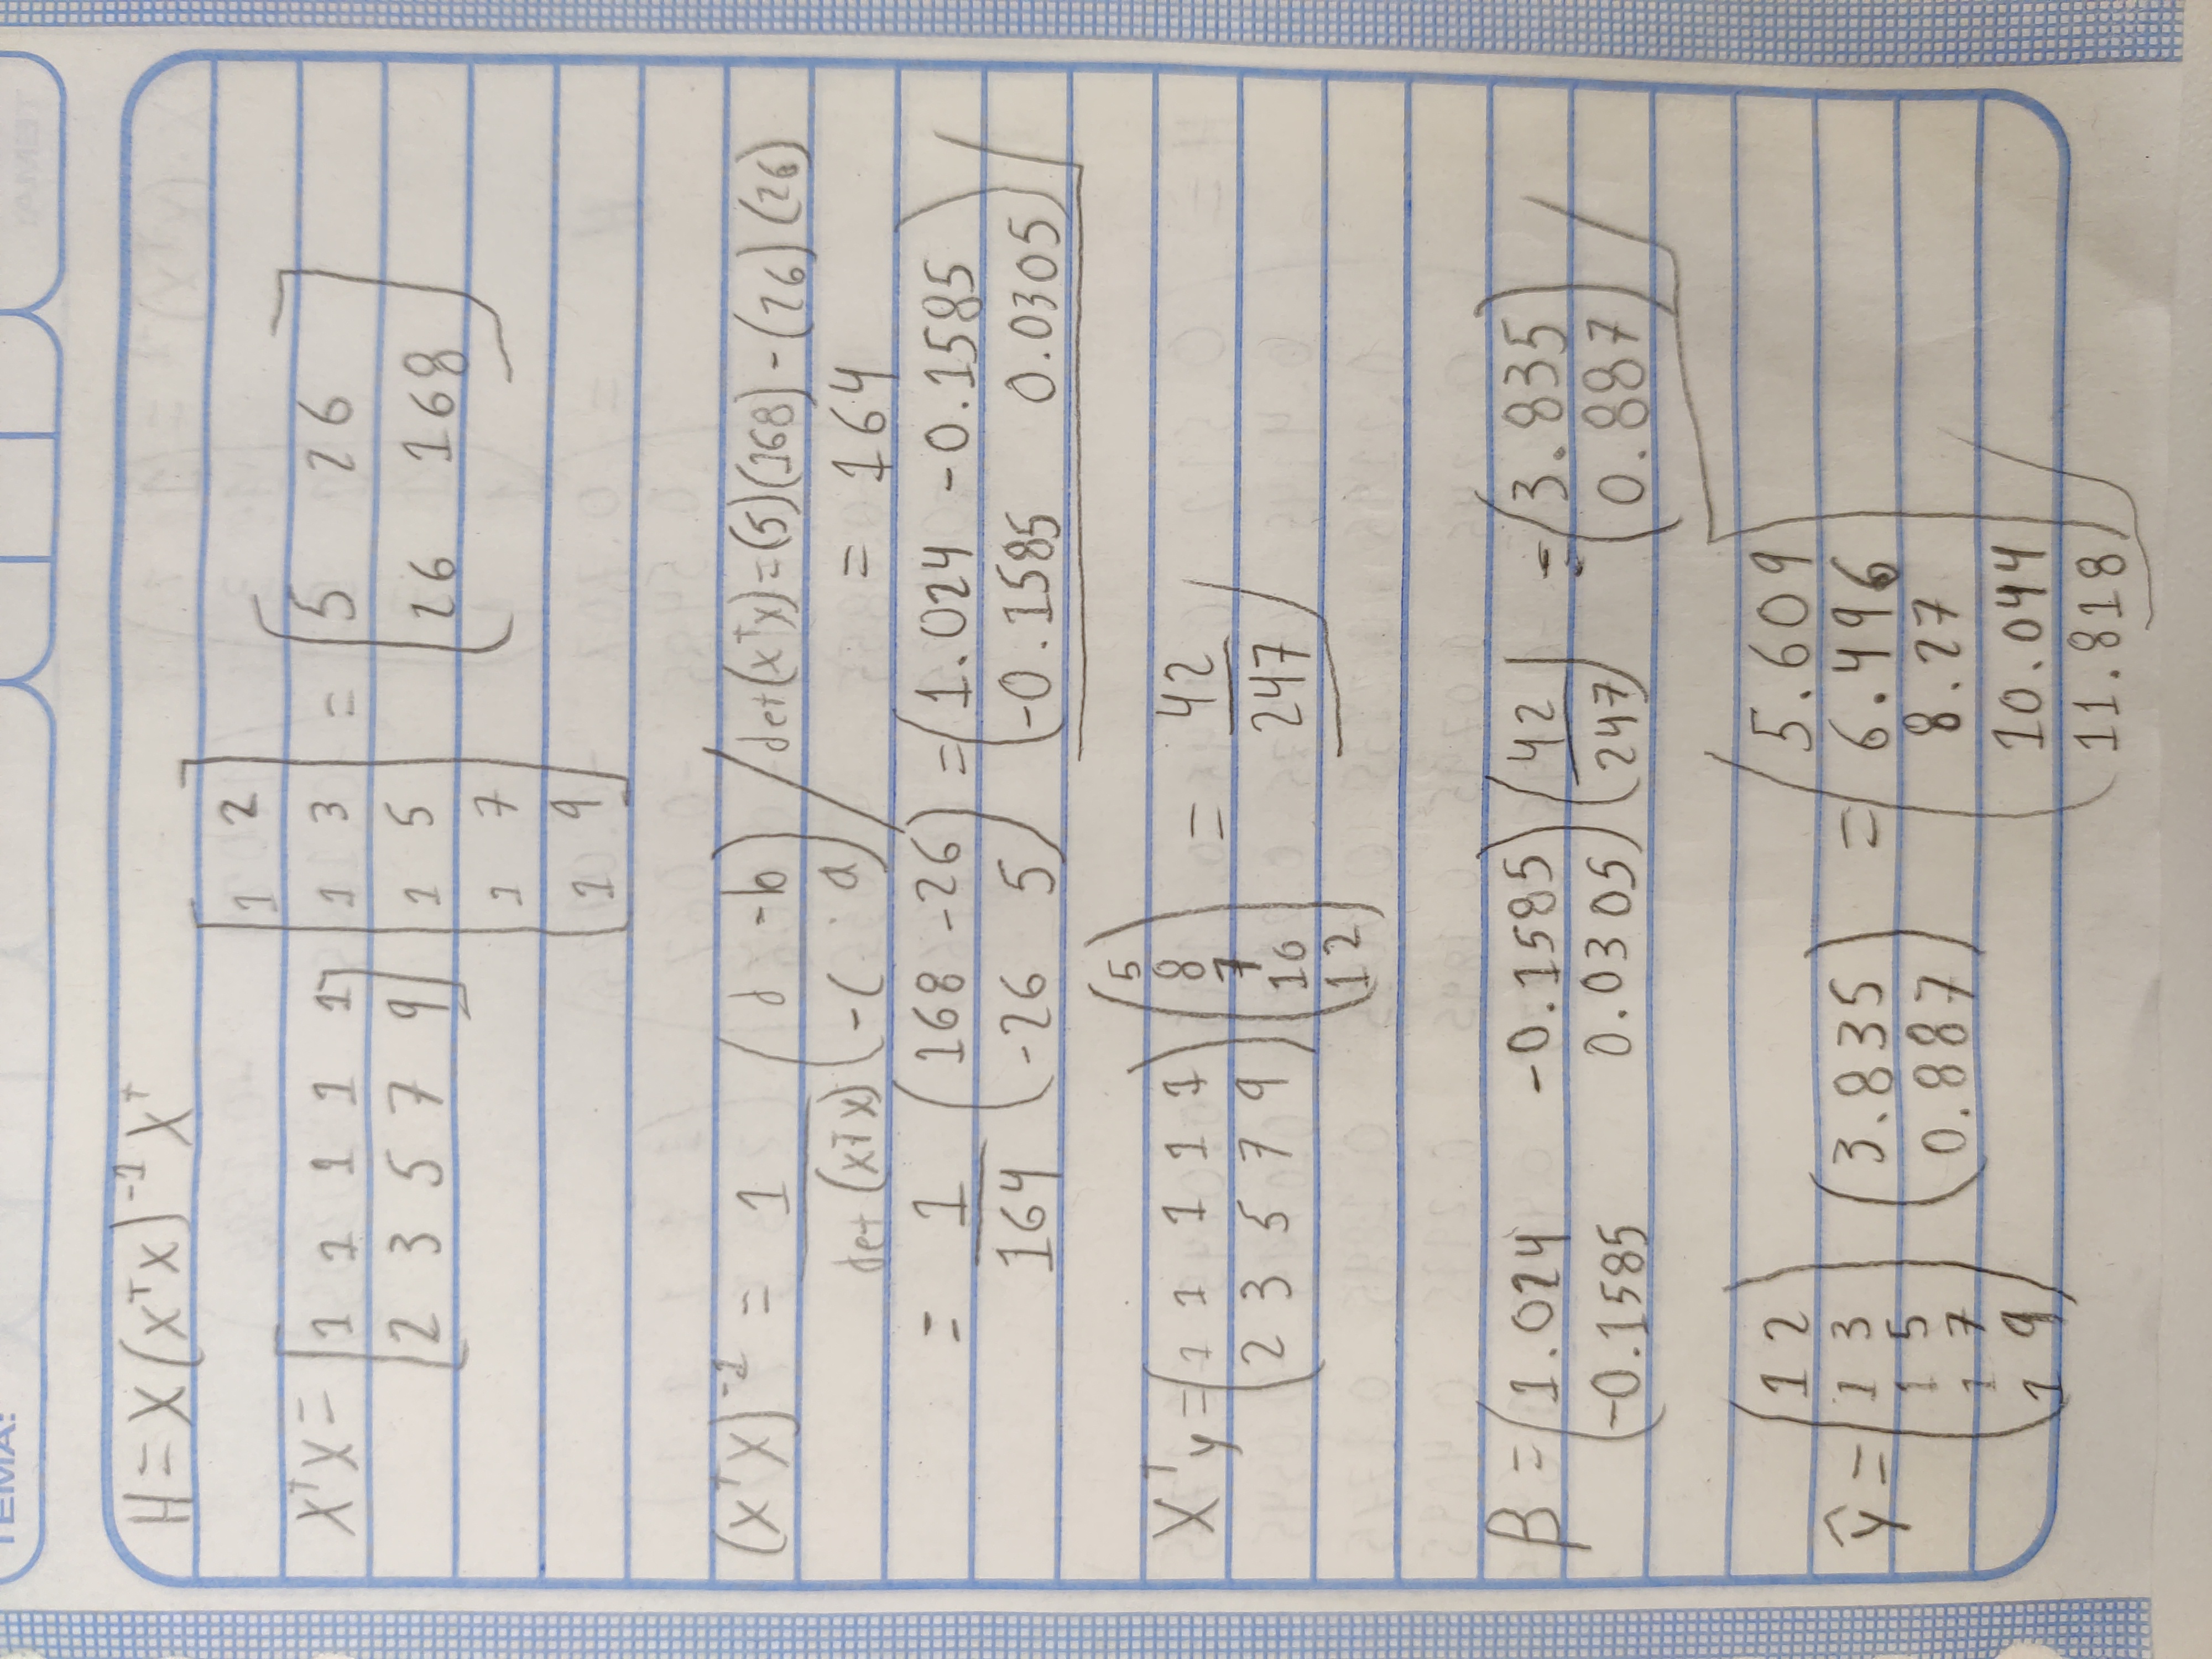 TEMA:
H = X(XᵀX)⁻¹Xᵀ
XᵀX = [1 1 1 1 1; 2 3 5 7 9] [1 2; 1 3; 1 5; 1 7; 1 9] = [5 26; 26 168]
(XᵀX)⁻¹ = 1/det(XᵀX) (d -b; -c a) / det(XᵀX) = (5)(168) - (26)(26)
= 164
= 1/164 (168 -26; -26 5) = (1.024 -0.1585; -0.1585 0.0305)
Xᵀy = (1 1 1 1 1; 2 3 5 7 9) (5; 8; 7; 10; 12) = 42/247
β = (1.024 -0.1585; -0.1585 0.0305) (42/247) = (3.835; 0.887)
ŷ = (1 2; 1 3; 1 5; 1 7; 1 9) (3.835; 0.887) = (5.609; 6.496; 8.27; 10.044; 11.818)